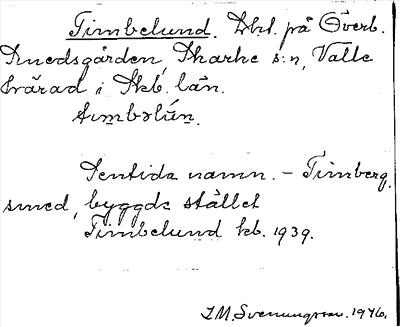 Timbelund. Lht. på Överb.
Knedsgården, Skarke s:n, Valle
härad i Skb. län.
timbəlún.
Sentida namn. – Timberg,
smed, byggde stället
Timbelund kb. 1939.
I.M. Svenungsson. 1946.